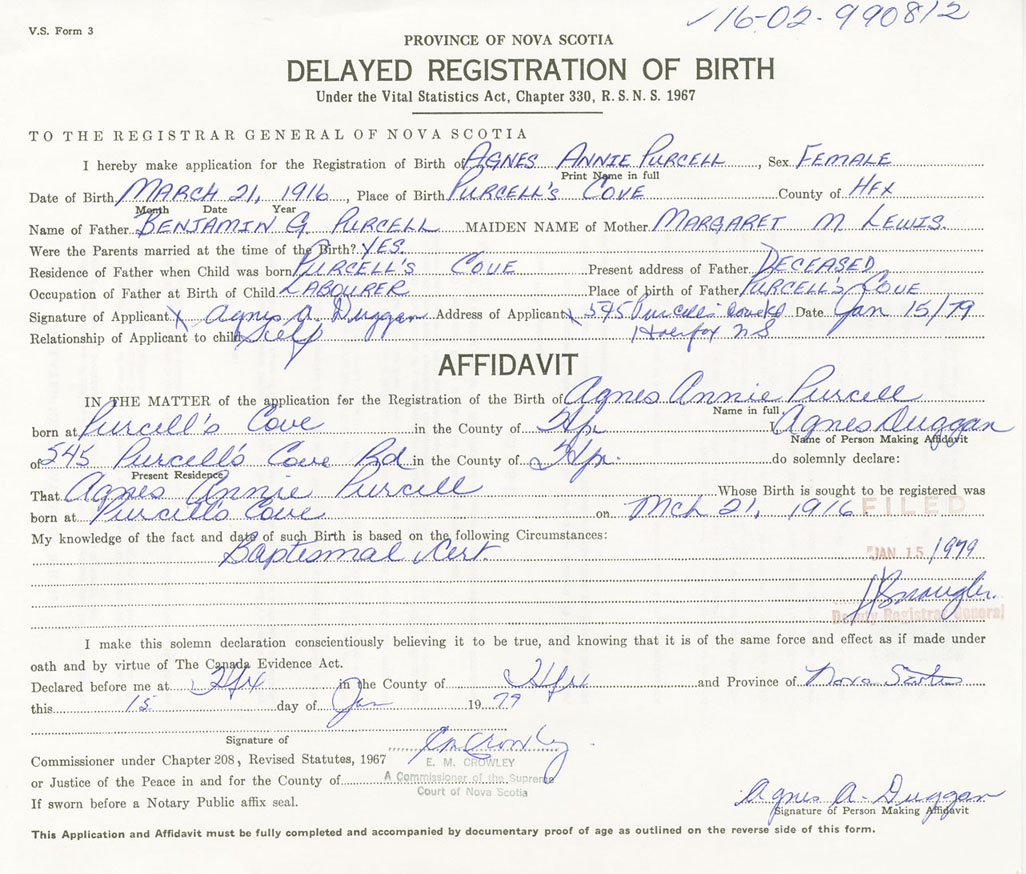 V.S. Form 3
✓16-02-990812
PROVINCE OF NOVA SCOTIA
DELAYED REGISTRATION OF BIRTH
Under the Vital Statistics Act, Chapter 330, R.S.N.S. 1967
TO THE REGISTRAR GENERAL OF NOVA SCOTIA
I hereby make application for the Registration of Birth of AGNES ANNIE PURCELL, Sex FEMALE
Print Name in full
Date of Birth MARCH 21, 1916, Place of Birth PURCELL'S COVE County of HFX
Month Date Year
Name of Father BENJAMIN G. PURCELL MAIDEN NAME of Mother MARGARET M LEWIS.
Were the Parents married at the time of the Birth? YES.
Residence of Father when Child was born PURCELL'S COVE Present address of Father DECEASED
Occupation of Father at Birth of Child LABOURER Place of birth of Father PURCELL'S COVE
Signature of Applicant X Agnes A. Duggan Address of Applicant X 545 Purcell's Cove Rd Date Jan 15/79
Relationship of Applicant to child Self Halifax NS
AFFIDAVIT
IN THE MATTER of the application for the Registration of the Birth of Agnes Annie Purcell
Name in full
born at Purcell's Cove in the County of Hfx I Agnes Duggan
Name of Person Making Affidavit
of 545 Purcell's Cove Rd in the County of Hfx. do solemnly declare:
Present Residence
That Agnes Annie Purcell Whose Birth is sought to be registered was
born at Purcell's Cove on Mch 21, 1916
FILED
My knowledge of the fact and date of such Birth is based on the following Circumstances:
Baptismal Cert
JAN 15/1979
Deputy Registrar General
I make this solemn declaration conscientiously believing it to be true, and knowing that it is of the same force and effect as if made under
oath and by virtue of The Canada Evidence Act.
Declared before me at Hfx in the County of Hfx and Province of Nova Scotia
this 15 day of Jan 1979
Signature of EM Crowley
Commissioner under Chapter 208, Revised Statutes, 1967 E. M. CROWLEY
or Justice of the Peace in and for the County of A Commissioner of the Supreme
Court of Nova Scotia
If sworn before a Notary Public affix seal.
Agnes A. Duggan
Signature of Person Making Affidavit
This Application and Affidavit must be fully completed and accompanied by documentary proof of age as outlined on the reverse side of this form.